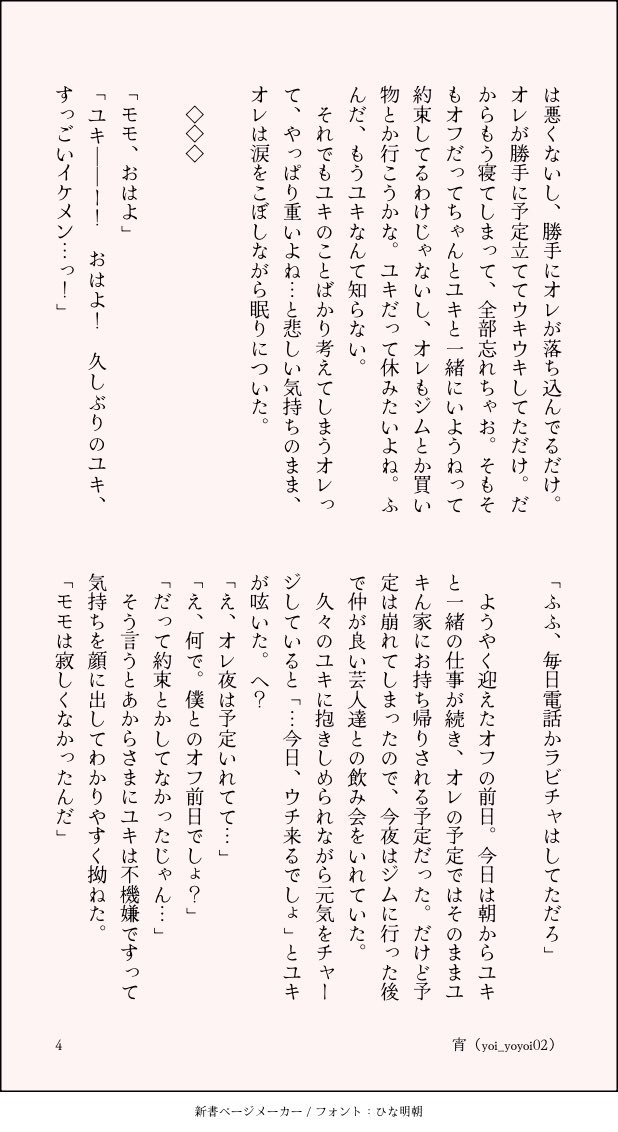 は悪くないし、勝手にオレが落ち込んでるだけ。
オレが勝手に予定立ててウキウキしてただけ。だ
からもう寝てしまって、全部忘れちゃお。そもそ
もオフだってちゃんとユキと一緒にいようねって
約束してるわけじゃないし、オレもジムとか買い
物とか行こうかな。ユキだって休みたいよね。ふ
んだ、もうユキなんて知らない。
　それでもユキのことばかり考えてしまうオレっ
て、やっぱり重いよね…と悲しい気持ちのまま、
オレは涙をこぼしながら眠りについた。
◇◇◇
「モモ、おはよ」
「ユキ――ー！　おはよ！　久しぶりのユキ、
すっごいイケメン…っ！」
「ふふ、毎日電話かラビチャはしてただろ」
　ようやく迎えたオフの前日。今日は朝からユキ
と一緒の仕事が続き、オレの予定ではそのままユ
キん家にお持ち帰りされる予定だった。だけど予
定は崩れてしまったので、今夜はジムに行った後
で仲が良い芸人達との飲み会をいれていた。
　久々のユキに抱きしめられながら元気をチャー
ジしていると「…今日、ウチ来るでしょ」とユキ
が呟いた。へ？
「え、オレ夜は予定いれてて…」
「え、何で。僕とのオフ前日でしょ？」
「だって約束とかしてなかったじゃん…」
　そう言うとあからさまにユキは不機嫌ですって
気持ちを顔に出してわかりやすく拗ねた。
「モモは寂しくなかったんだ」
4
宵（yoi_yoyoi02）
新書ページメーカー / フォント：ひな明朝